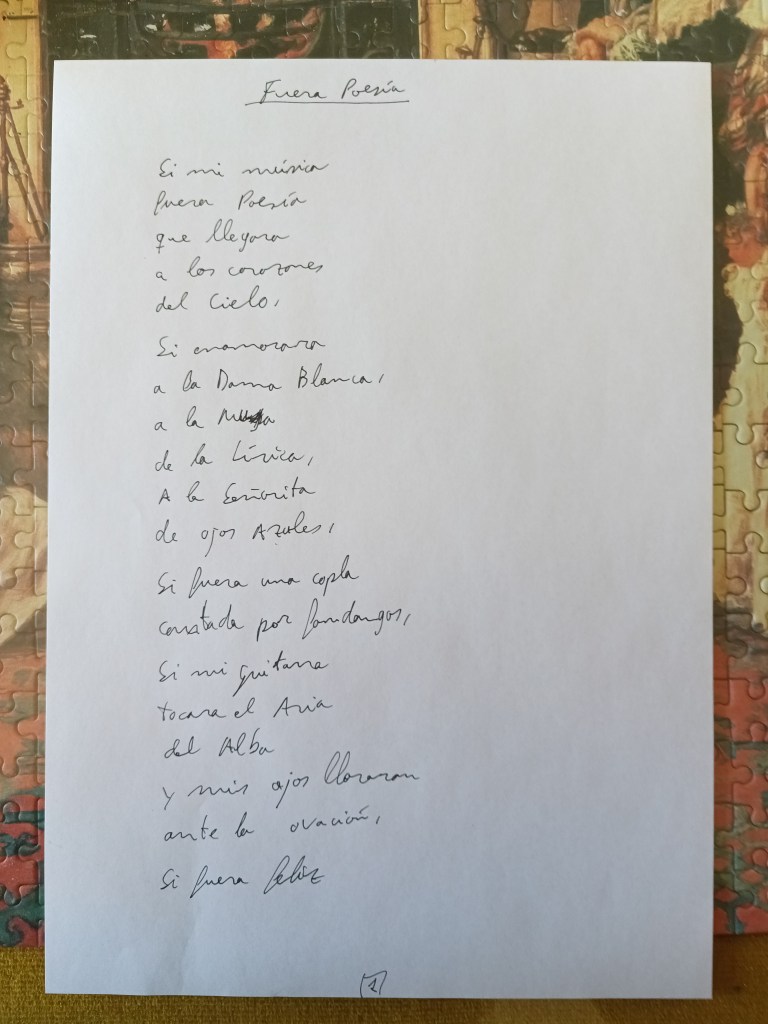 Fuera Poesía
Si mi música
fuera Poesía
que llegara
a los corazones
del Cielo,
Si enamorara
a la Dama Blanca,
a la Musa
de la Lírica,
A la Señorita
de ojos Azules,
Si fuera una copla
cantada por fandangos,
Si mi guitarra
tocara el Aria
del Alba
y mis ojos lloraran
ante la ovación,
Si fuera feliz
1